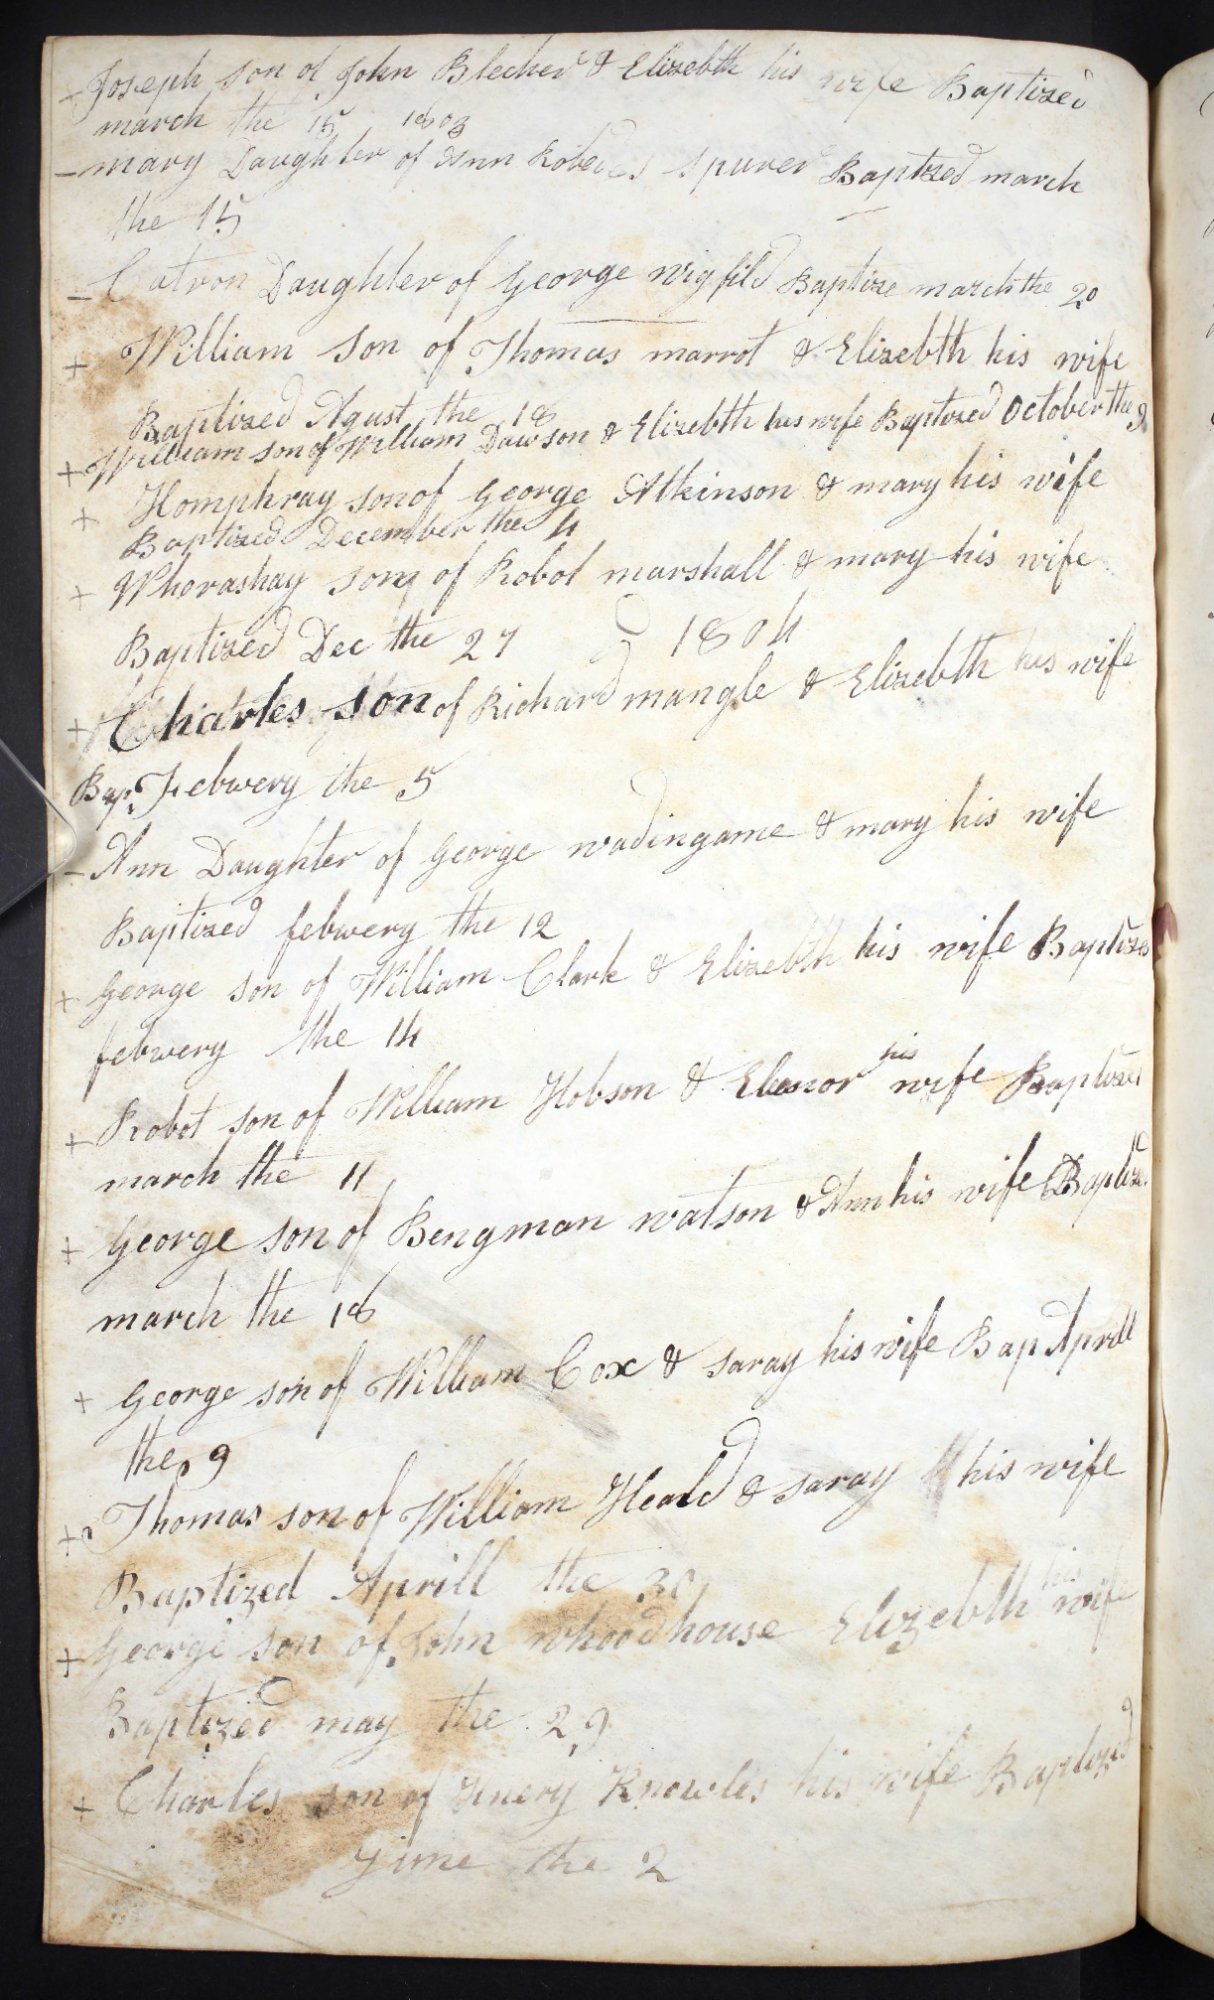 Joseph son of John Blecher & Elizebth his wife Baptized
march the 15 1803
mary Daughter of Ann Roberts spurer Baptized march
the 15
Catron Daughter of George wigfild Baptize march the 20
William Son of Thomas marrot & Elizebth his wife
Baptized Agust the 18
William son of William Dawson & Elizebth his wife Baptized October the 9
Homphray son of George Atkinson & mary his wife
Baptized December the 4
Whorashay song of Robot marshall & mary his wife
Baptized Dec the 27 1804
Charles son of Richard mangle & Elizebth his wife
Bap Febwery the 5
Ann Daughter of George wadingame & mary his wife
Baptized febwery the 12
George son of William Clark & Elizebth his wife Baptized
febwery the 14
Robot son of William Hobson & Elenor his wife Baptized
march the 11
George son of Bengman watson & Ann his wife Baptize
march the 18
George son of William Cox & saray his wife Bap Aprill
the 9
Thomas son of William Heald & saray his wife
Baptized Aprill the 30
George son of John whoodhouse Elizebth his wife
Baptized may the 29
Charles son of Knowles his wife Baptized
June the 2